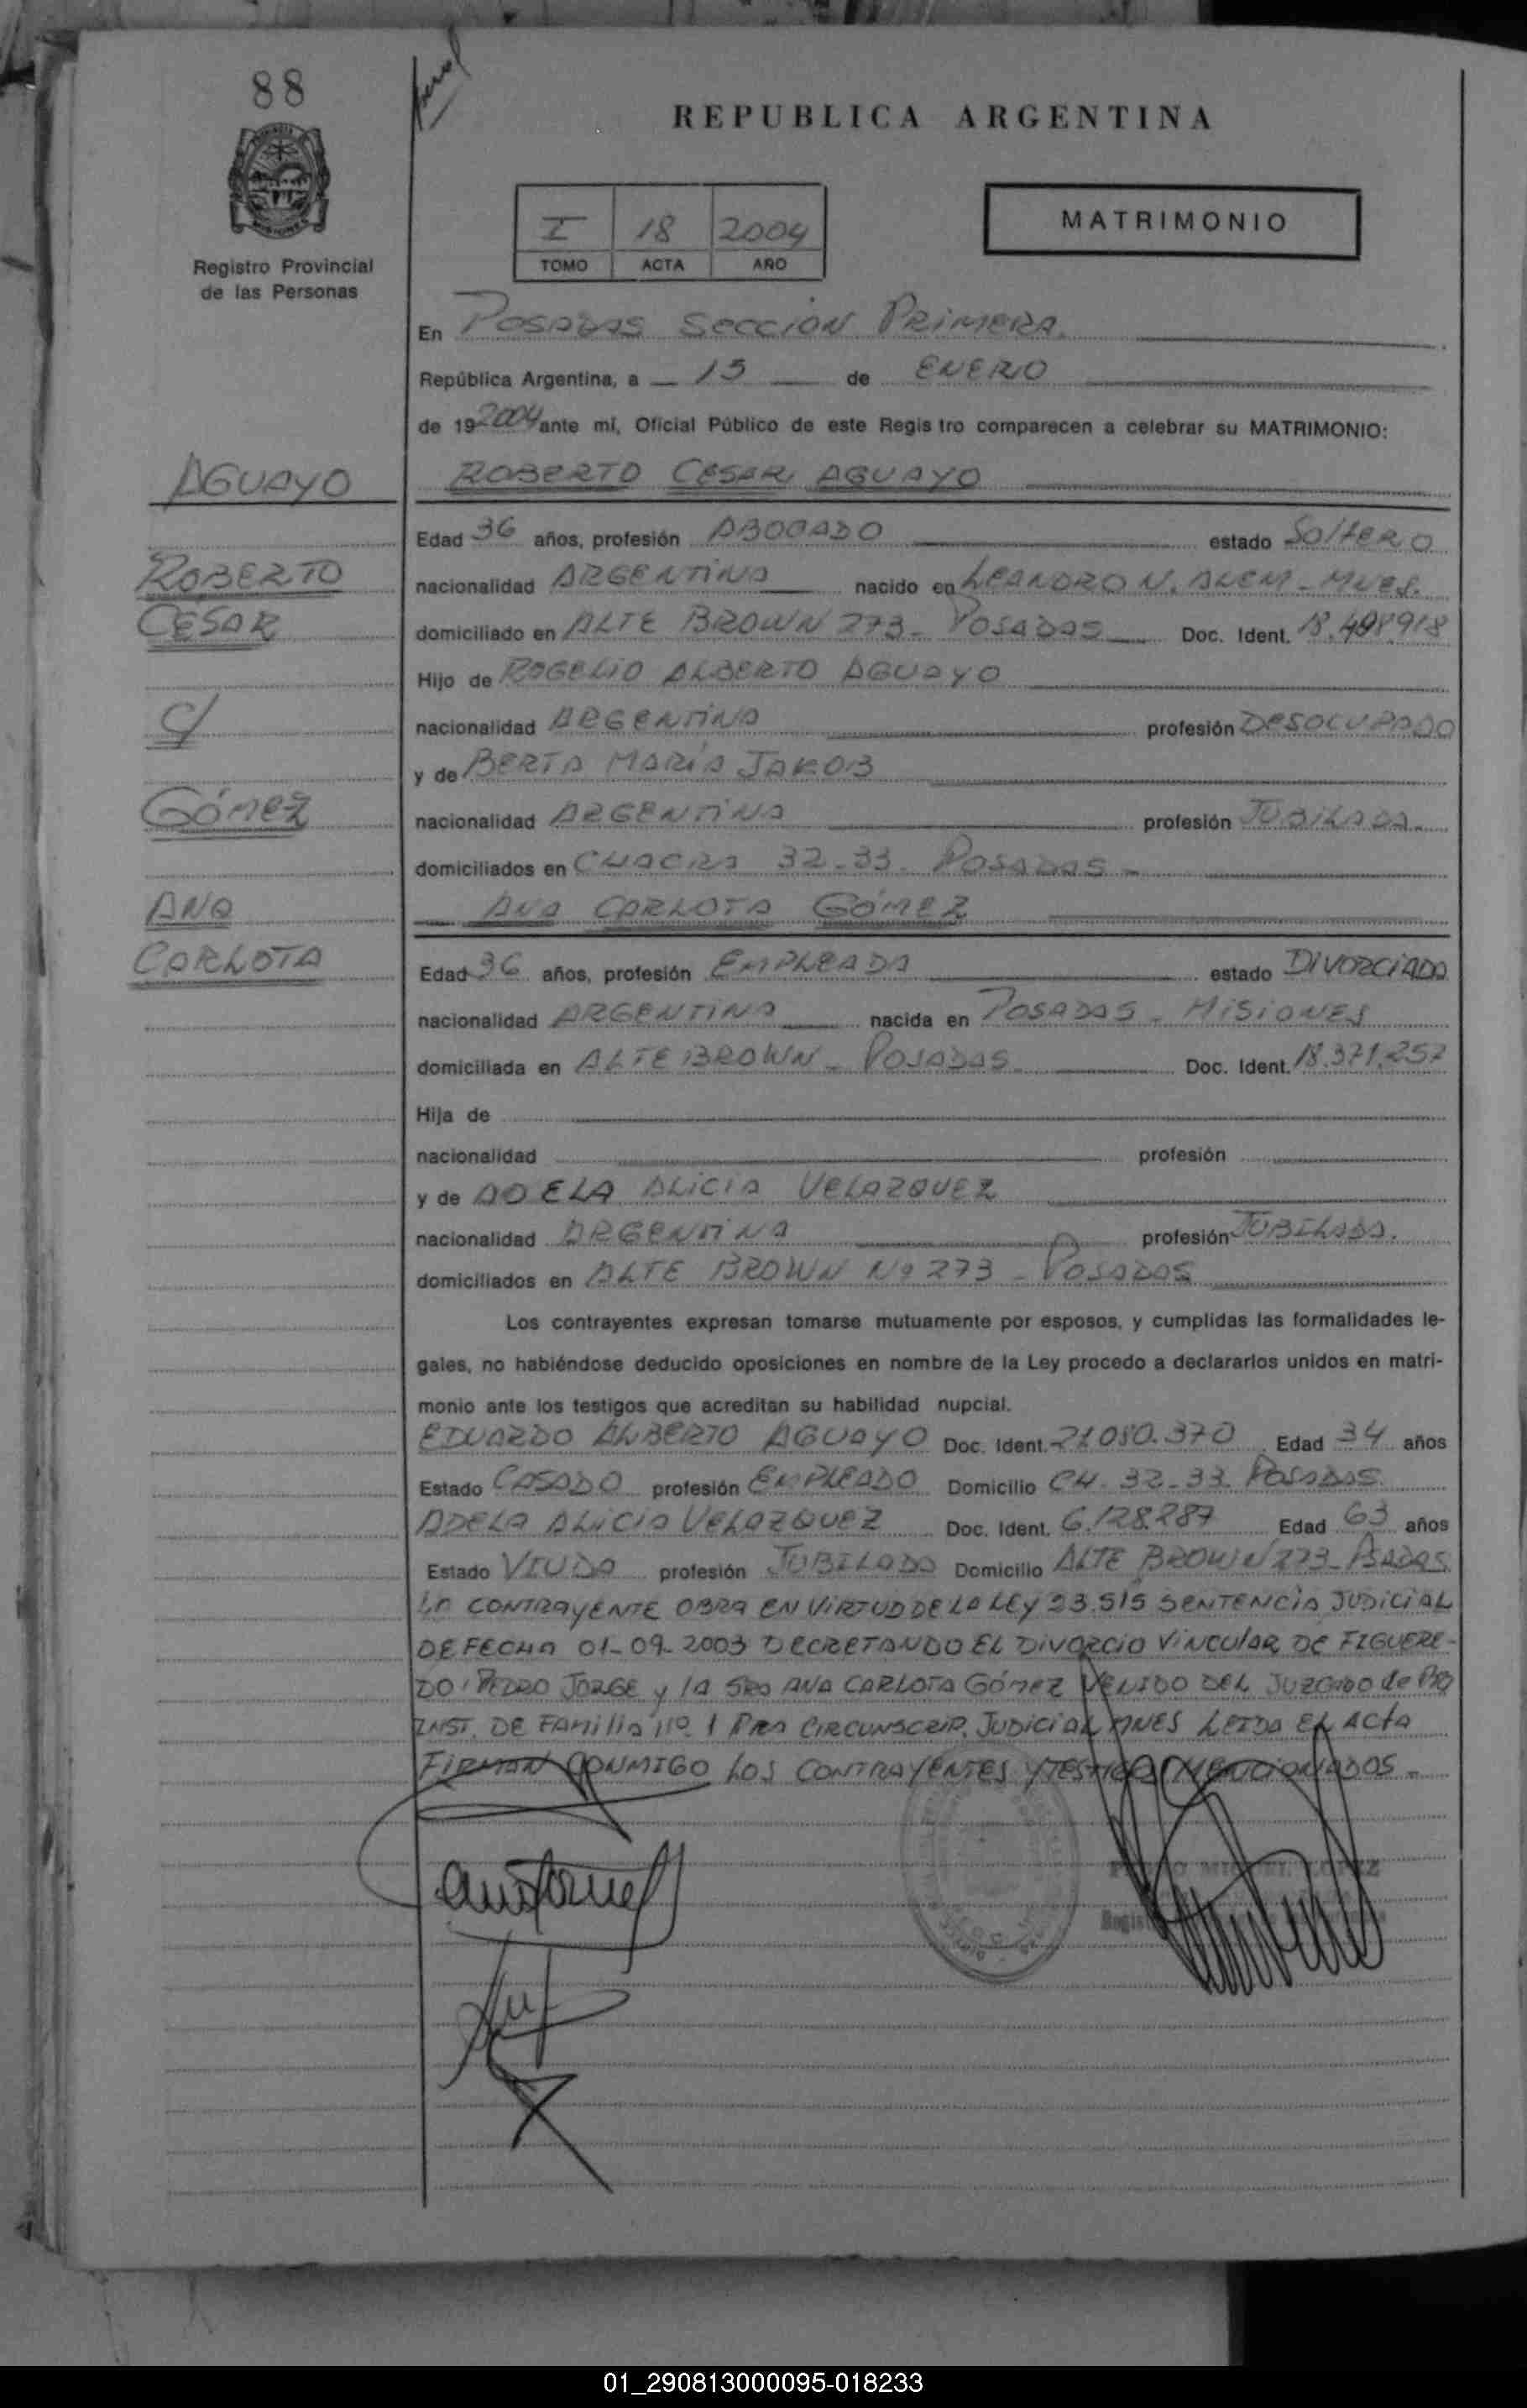 88
REPUBLICA ARGENTINA
Registro Provincial
de las Personas
I 18 2004
TOMO ACTA AÑO
MATRIMONIO
En POSADAS SECCION PRIMERA
República Argentina, a 15 de ENERO
de 19 2004 ante mí, Oficial Público de este Regis tro comparecen a celebrar su MATRIMONIO:
AGUAYO
ROBERTO CESAR AGUAYO
Edad 36 años, profesión ABOGADO estado SOLTERO
ROBERTO
nacionalidad ARGENTINA nacido en LEANDRO N. ALEM - MNES.
CESAR
domiciliado en ALTE BROWN 273 - POSADAS Doc. Ident. 18.498918
Hijo de ROGELIO ALBERTO AGUAYO
C/
nacionalidad ARGENTINA profesión DESOCUPADO
y de BERTA MARÍA JAKOB
GÓMEZ
nacionalidad ARGENTINA profesión JUBILADA
domiciliados en CHACRA 32-33- POSADAS -
ANA
ANA CARLOTA GÓMEZ
CARLOTA
Edad 36 años, profesión EMPLEADA estado DIVORCIADA
nacionalidad ARGENTINA nacida en POSADAS - MISIONES
domiciliada en ALTE BROWN - POSADAS Doc. Ident. 18.371.257
Hija de
nacionalidad profesión
y de ADELA ALICIA VELAZQUEZ
nacionalidad ARGENTINA profesión JUBILADA.
domiciliados en ALTE BROWN Nº 273 - POSADAS
Los contrayentes expresan tomarse mutuamente por esposos, y cumplidas las formalidades le-
gales, no habiéndose deducido oposiciones en nombre de la Ley procedo a declararlos unidos en matri-
monio ante los testigos que acreditan su habilidad nupcial.
EDUARDO ALBERTO AGUAYO Doc. Ident. 21.080.370 Edad 34 años
Estado CASADO profesión EMPLEADO Domicilio CH. 32-33. POSADAS
ADELA ALICIA VELAZQUEZ Doc. Ident. 6.128.287 Edad 63 años
Estado VIUDA profesión JUBILADA Domicilio ALTE BROWN 273- PSADAS
LA CONTRAYENTE OBRA EN VIRTUD DE LA LEY 23.515 SENTENCIA JUDICIAL
DE FECHA 01-09-2003 DECRETANDO EL DIVORCIO VINCULAR DE FIGUERE-
DO PEDRO JORGE y LA SRA ANA CARLOTA GÓMEZ VENIDO DEL JUZGADO de PRA
INST. DE FAMILIA Nº 1 PRA CIRCUNSCRIP. JUDICIAL MNES LEIDA EL ACTA
FIRMAN CONMIGO LOS CONTRAYENTES Y TESTIGOS MENCIONADOS -
MIGUEL LOPEZ
01_290813000095-018233